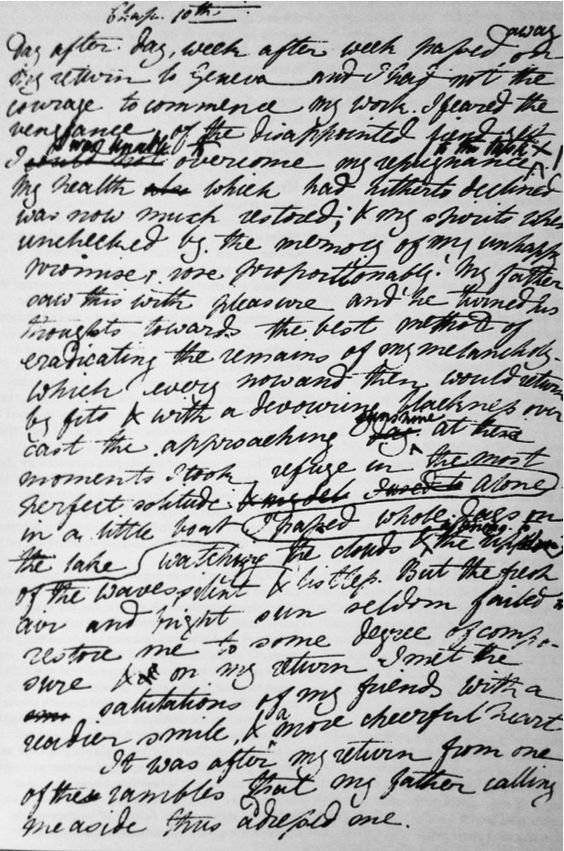 Chap. 10th
away
Day after day, week after week passed on
my return to Geneva and I had not the
courage to commence my work. I feared the
vengeance of the disappointed fiend yet
was unable to to the task
I could not overcome my repugnance
My health which had hitherto declined
was now much restored; & my spirits when
unchecked by the memory of my unhappy
promise, rose proportionably. My father
saw this with pleasure and he turned his
thoughts towards the best method of
eradicating the remains of my melancholy
which every now and then would return
by fits & with a devouring blackness over
sunshine
cast the approaching at these
moments I took refuge in the most
perfect solitude I used to alone
in a little boat I passed whole days on
the lake watching the clouds & the
of the waves silent & listless. But the fresh
air and bright sun seldom failed to
restore me to some degree of compo-
sure & on my return I met the
salutations of my friends with a
a
readier smile, & more cheerful heart
It was after my return from one
of these rambles that my father calling
me aside thus adressed me.